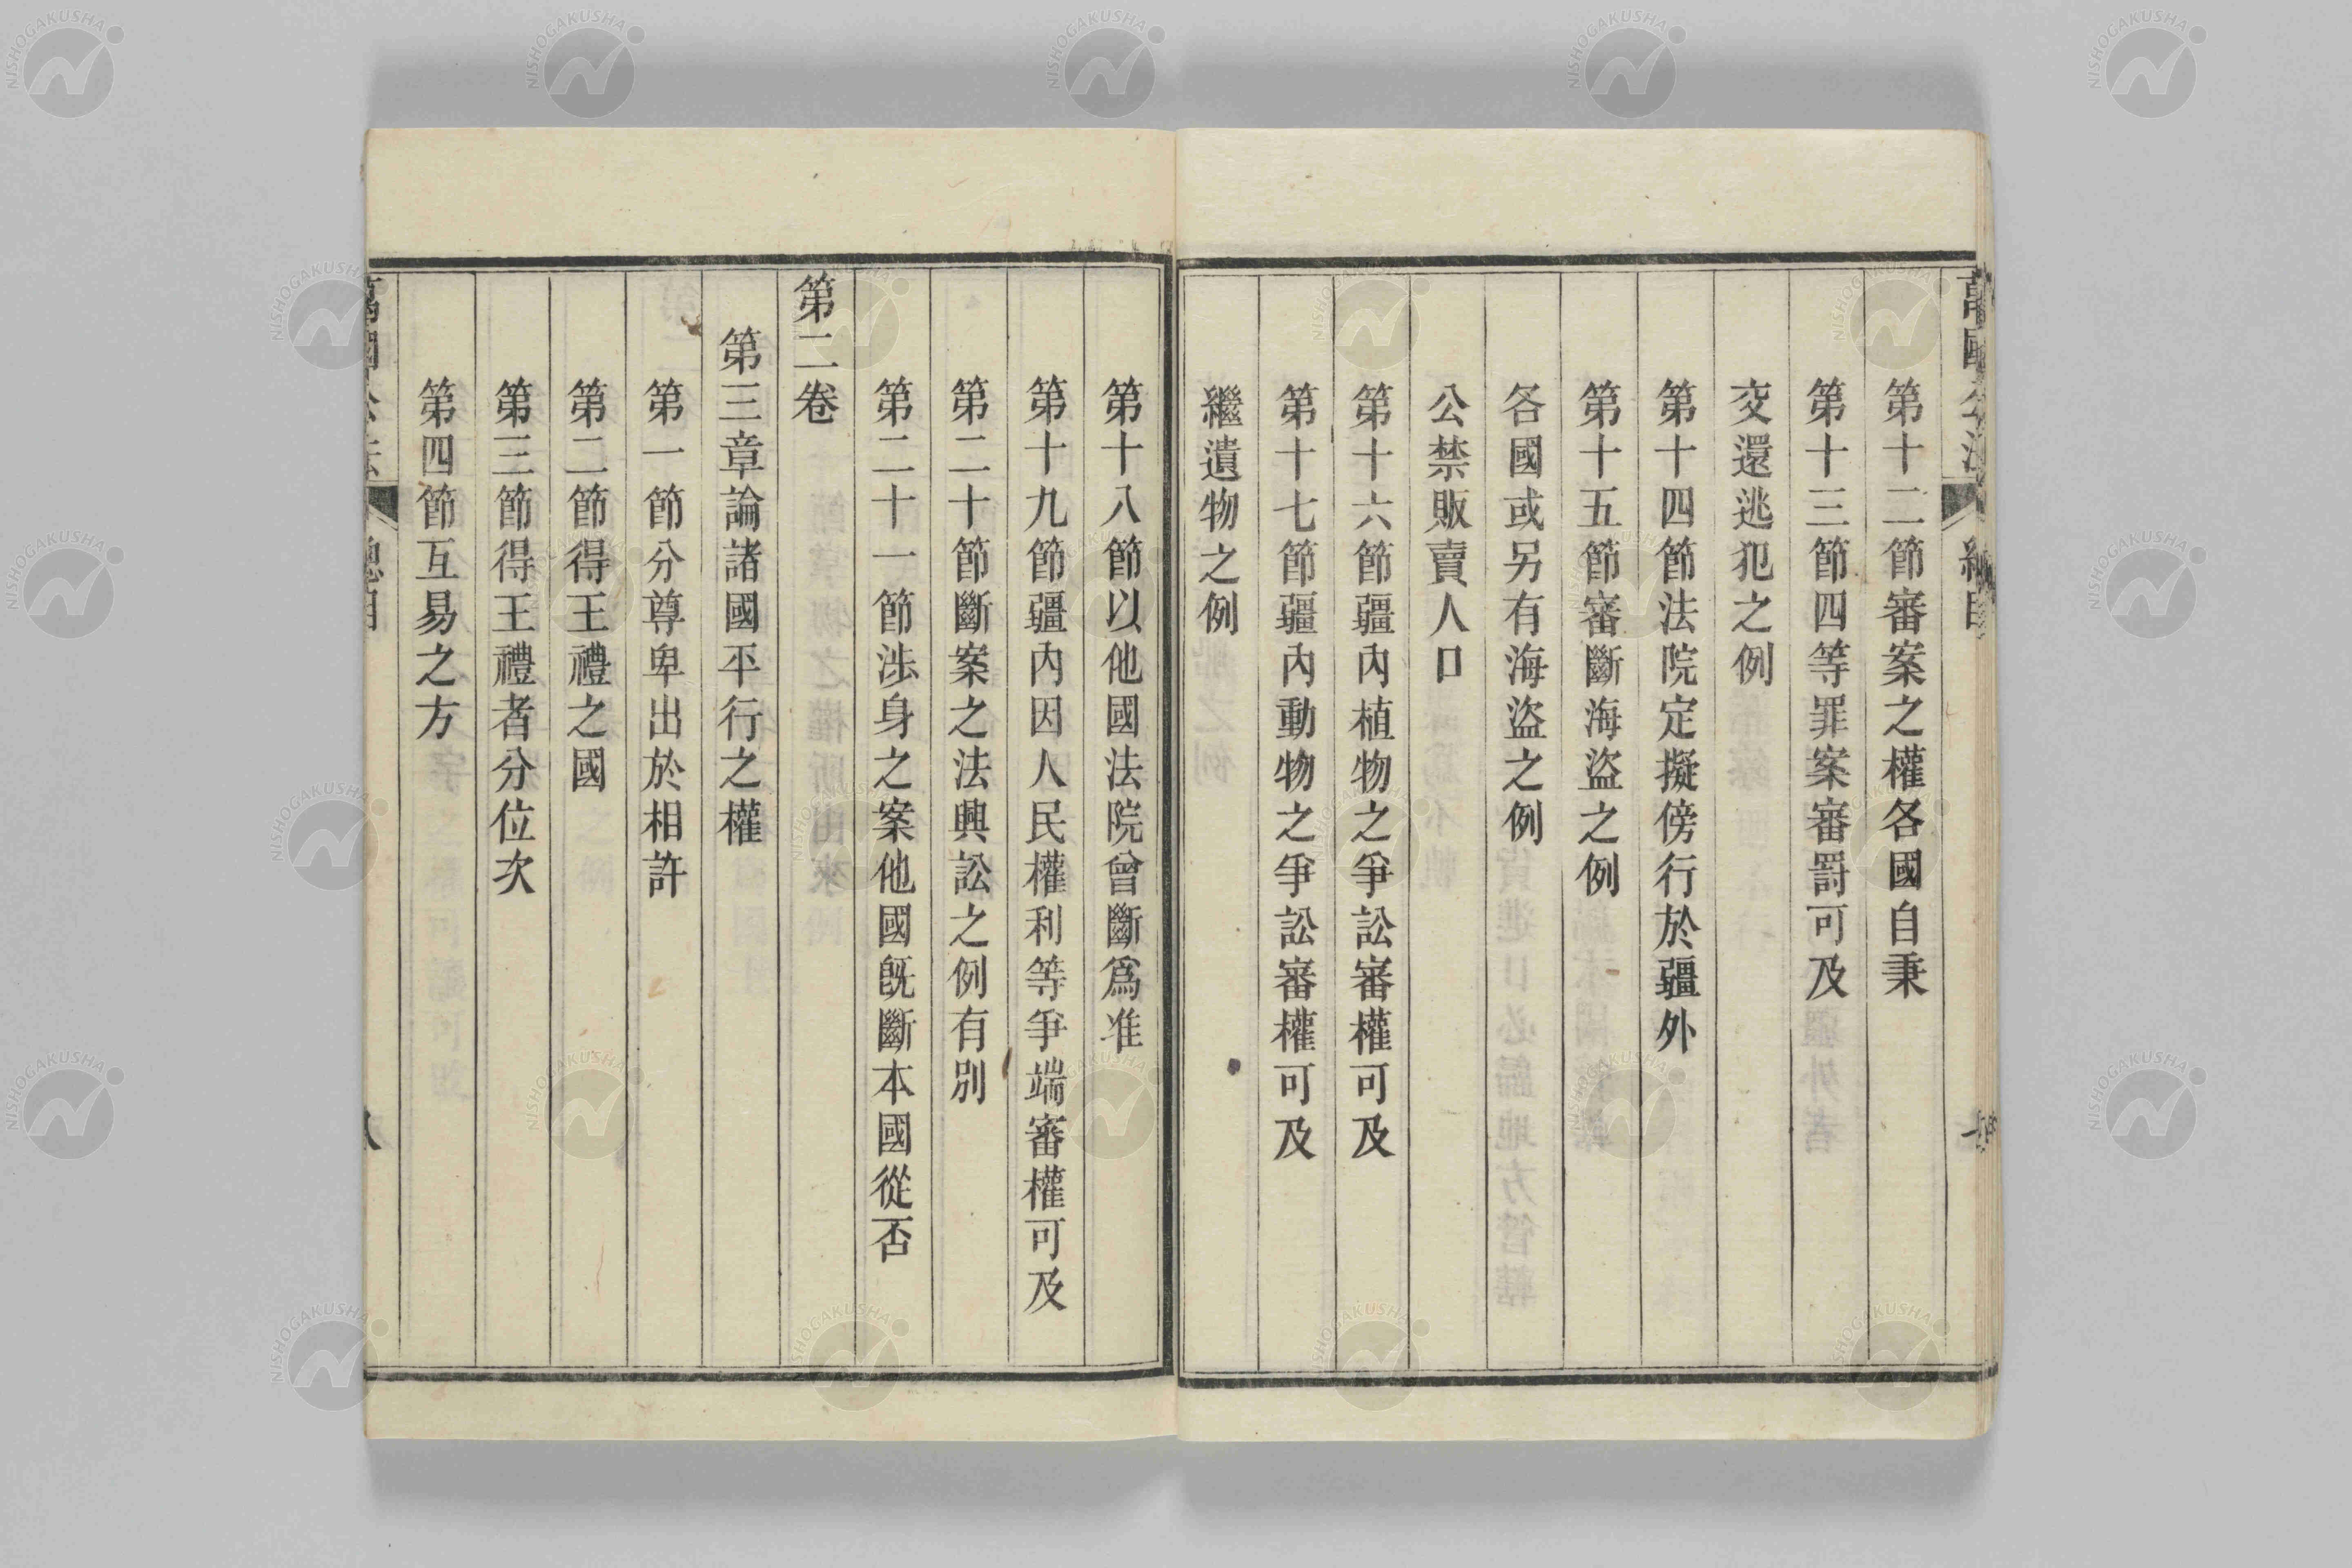 第十二節審案之權各國自秉
第十三節四等罪案審罰可及
交還逃犯之例
第十四節法院定擬傍行於疆外
第十五節審斷海盜之例
各國或另有海盜之例
公禁販賣人口
第十六節疆內植物之爭訟審權可及
第十七節疆內動物之爭訟審權可及
繼遺物之例
第十八節以他國法院曾斷爲准
第十九節疆內因人民權利等爭端審權可及
第二十節斷案之法與訟之例有別
第二十一節涉身之案他國既斷本國從否
第二卷
第三章論諸國平行之權
第一節分尊卑出於相許
第二節得王禮之國
第三節得王禮者分位次
第四節互易之方
NISHOGAKUSHA